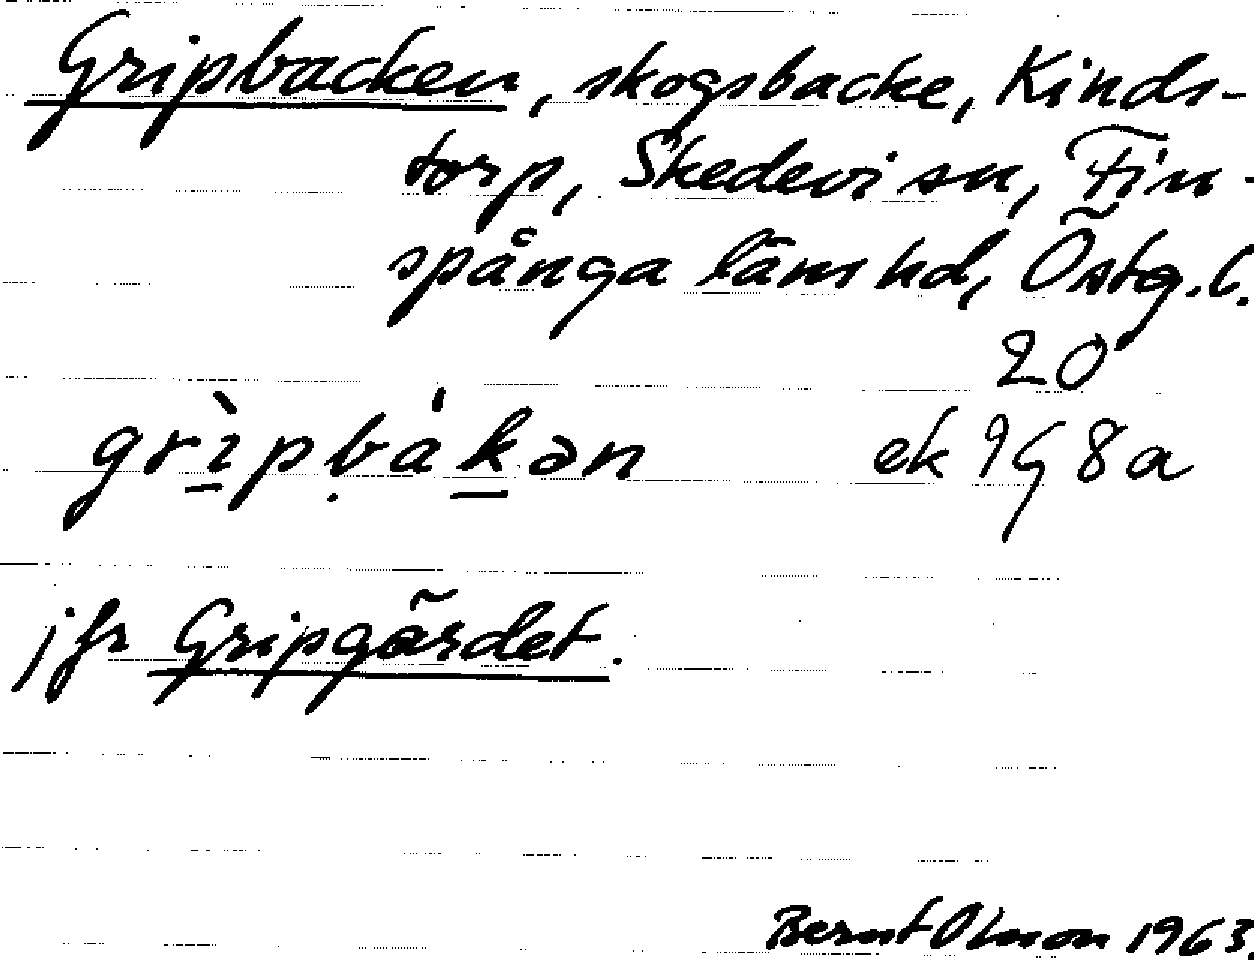 Gripbacken, skogsbacke, Kinds-
torp, Skedevi sn, Fin-
spånga läns hd, Östg. l.
20
grì̱pḅáḵən ek 9G8a
jfr Gripgärdet.
Bernt Olsson 1963.